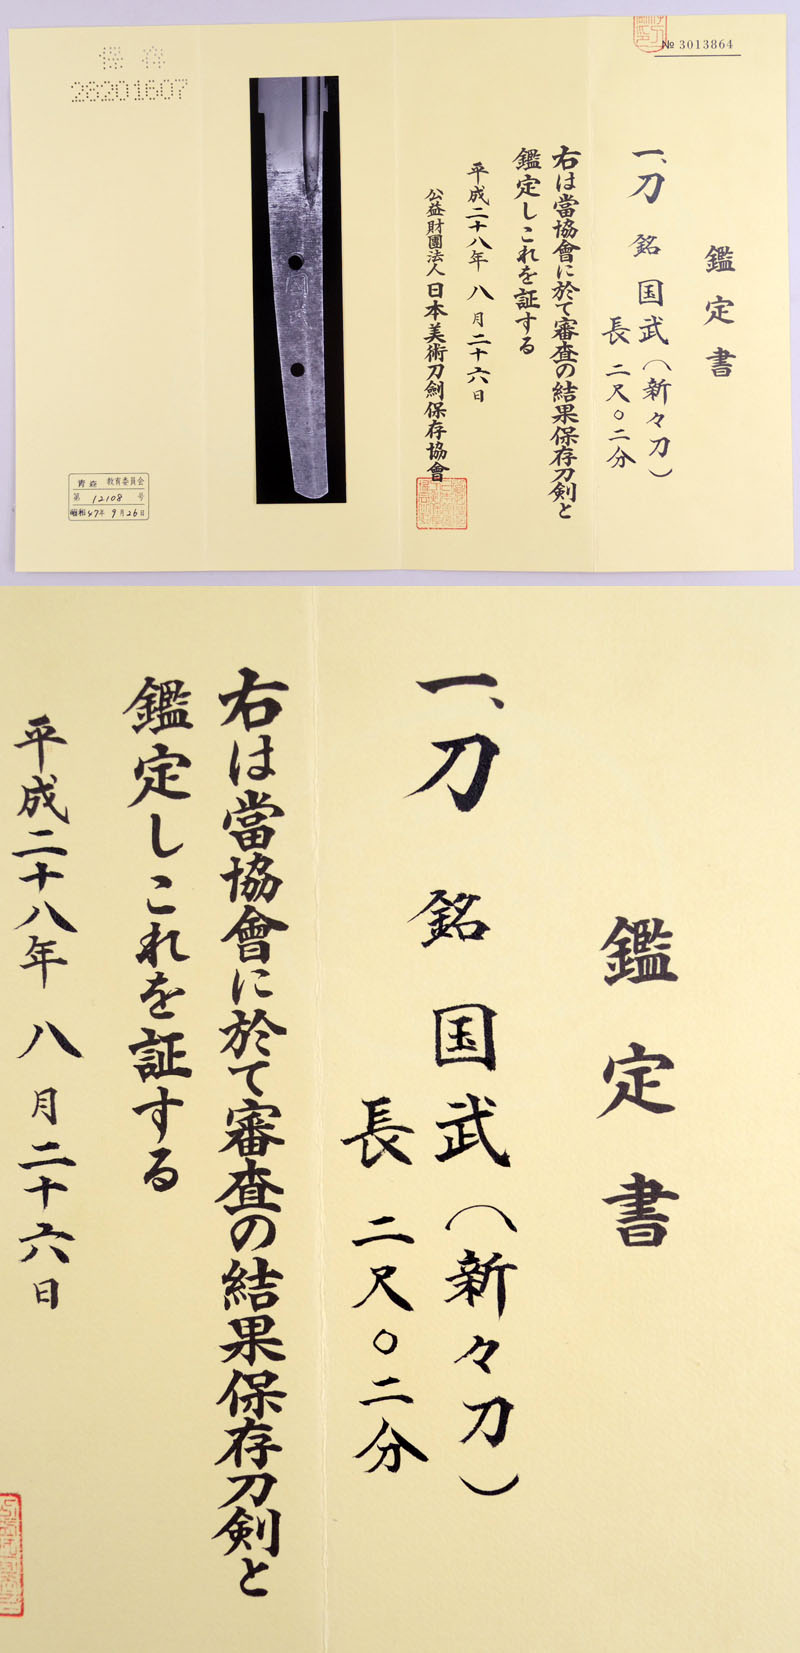 № 3013864
鑑定書
一、刀 銘 国武(新々刀)
長 二尺〇二分
右は當協會に於て審査の結果保存刀剣と
鑑定しこれを証する
平成二十八年 八月二十六日
公益財團法人 日本美術刀劍保存協會
国武
保存
28201607
青森 教育委員会
第 12108 号
昭和47年9月26日
鑑定書
一、刀 銘 国武(新々刀)
長 二尺〇二分
右は當協會に於て審査の結果保存刀剣と
鑑定しこれを証する
平成二十八年 八月二十六日